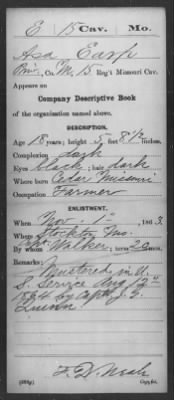 E 15 Cav. Mo.
Asa Earp
Priv., Co. M, 15 Reg't Missouri Cav.
Appears on
Company Descriptive Book
of the organization named above.
DESCRIPTION.
Age 18 years; height 5 feet 8 1/2 inches.
Complexion dark
Eyes black; hair dark
Where born Cedar Missouri
Occupation Farmer
ENLISTMENT.
When Nov. 1", 1863
Where Stockton Mo.
By whom Walker; term 20 mos.
Remarks: Mustered in U.
S. Service Aug 12"
1864 by Capt J. E.
Copyist.